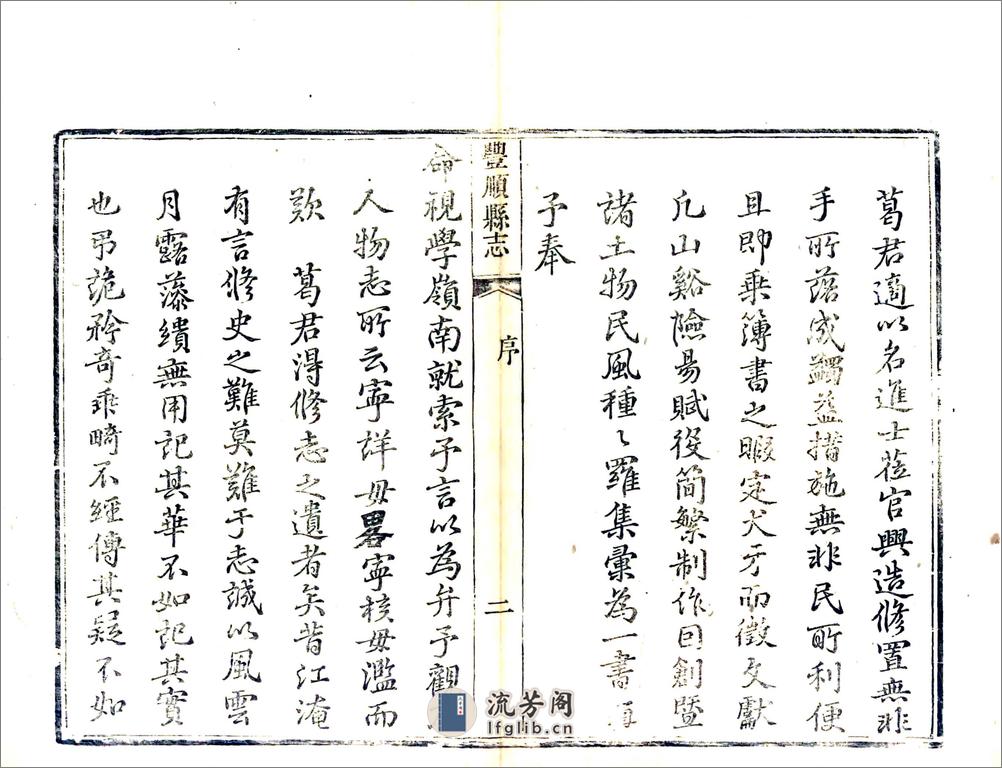 葛君適以名進士蒞官興造修置無非
手所落成蠲益措施無非民所利便
且即乗簿書之暇定犬牙而徵文獻
凡山谿險昜賦役简繁制作回創暨
諸土物民風種〻羅集彙為一書
予奉
豐順縣志
序
二
命視學嶺南就索予言以為弁予觀
人物志所云寕詳毋畧寕核毋濫而
歎 葛君淂修志之遺者矣昔江淹
有言修史之難莫難于志誠以風雲
月露藻繢無用記其華不如記其實
也弔詭矜奇乖畸不經傳其疑不如
流芳阁
lfglib.cn